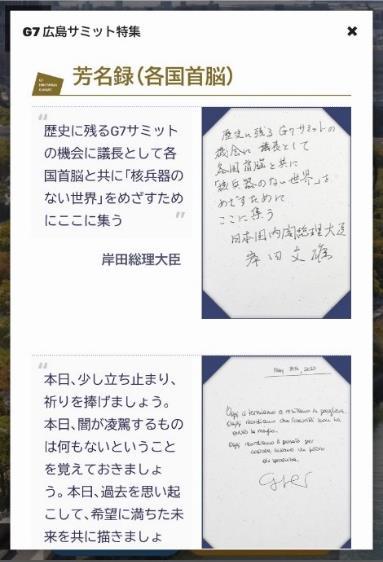 G7 広島サミット特集
芳名録（各国首脳）
歴史に残るG7サミット
の機会に議長として各
国首脳と共に「核兵器の
ない世界」をめざすため
にここに集う
岸田総理大臣
歴史に残る G7サミットの
機会に 議長として
各国首脳と共に
「核兵器のない世界」を
めざすために
ここに集う
日本国内閣総理大臣
岸田文雄
本日、少し立ち止まり、
祈りを捧げましょう。
本日、闇が凌駕するもの
は何もないということ
を覚えておきましょ
う。本日、過去を思い起
こして、希望に満ちた未
来を共に描きましょ
Oggi ci fermiamo e restiamo in preghiera.